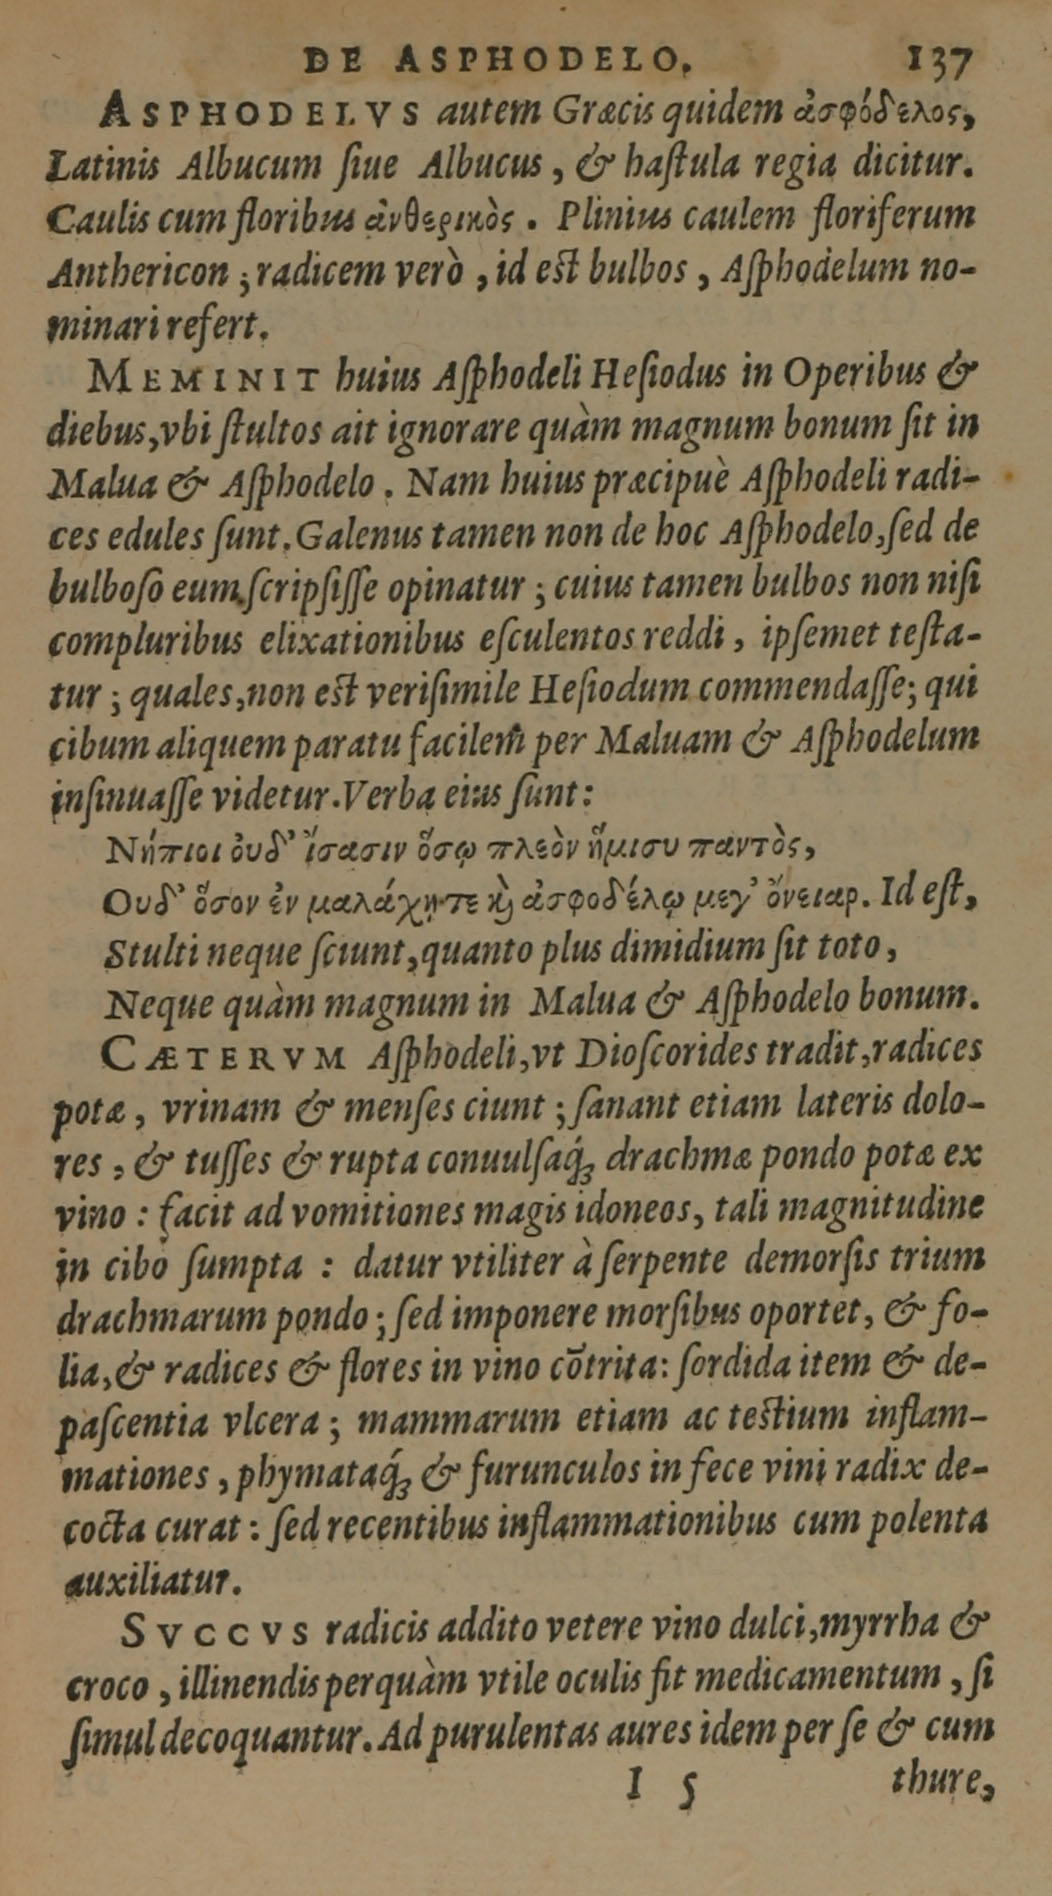 DE ASPHODELO. 137
ASPHODELVS autem Græcis quidem ἀσφόδελος,
Latinis Albucum ſiue Albucus, & haſtula regia dicitur.
Caulis cum floribus ἀνθερικὸς. Plinius caulem floriferum
Anthericon; radicem verò, id eſt bulbos, Aſphodelum no-
minari refert.
MEMINIT huius Aſphodeli Heſiodus in Operibus &
diebus, vbi ſtultos ait ignorare quàm magnum bonum ſit in
Malua & Aſphodelo. Nam huius præcipuè Aſphodeli radi-
ces edules ſunt. Galenus tamen non de hoc Aſphodelo, ſed de
bulboſo eum ſcripſiſſe opinatur; cuius tamen bulbos non niſi
compluribus elixationibus eſculentos reddi, ipſemet teſta-
tur; quales, non eſt veriſimile Heſiodum commendaſſe; qui
cibum aliquem paratu facilem per Maluam & Aſphodelum
inſinuaſſe videtur. Verba eius ſunt:
Νήπιοι ὀυδ᾽ ἴσασιν ὅσῳ πλεὸν ἥμισυ παντὸς,
Ουδ᾽ ὅσον ἐν μαλάχῃ τε ϗ ἀσφοδέλῳ μεγ᾽ ὄνειαρ. Id eſt,
Stulti neque ſciunt, quanto plus dimidium ſit toto,
Neque quàm magnum in Malua & Aſphodelo bonum.
CÆTERVM Aſphodeli, vt Dioſcorides tradit, radices
potæ, vrinam & menſes ciunt; ſanant etiam lateris dolo-
res, & tuſſes & rupta conuulſaq́; drachmæ pondo potæ ex
vino: facit ad vomitiones magis idoneos, tali magnitudine
in cibo ſumpta: datur vtiliter à ſerpente demorſis trium
drachmarum pondo; ſed imponere morſibus oportet, & fo-
lia, & radices & flores in vino cōtrita: ſordida item & de-
paſcentia vlcera; mammarum etiam ac teſtium inflam-
mationes, phymataq́; & furunculos in fece vini radix de-
cocta curat: ſed recentibus inflammationibus cum polenta
auxiliatur.
SVCCVS radicis addito vetere vino dulci, myrrha &
croco, illinendis perquàm vtile oculis fit medicamentum, ſi
ſimul decoquantur. Ad purulentas aures idem per ſe & cum
I 5 thure,